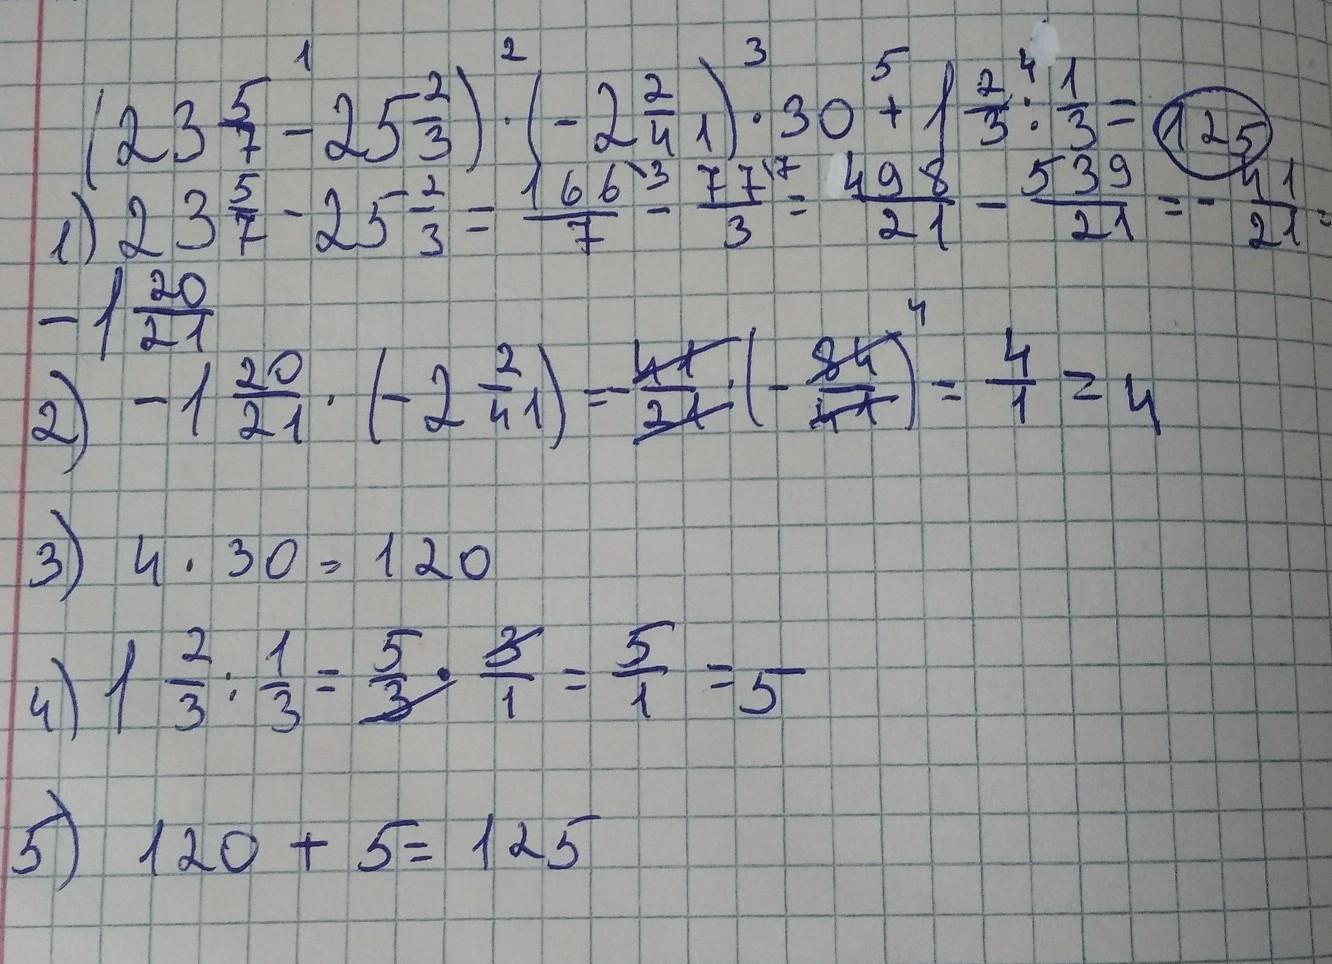 1 2 3 5 4
(23 5/7 - 25 2/3) · (-2 2/41) · 30 + 1 2/3 : 1/3 = 125
1) 23 5/7 - 25 2/3 = 166\3/7 - 77\7/3 = 498/21 - 539/21 = - 41/21 =
-1 20/21
2) -1 20/21 · (-2 2/41) = - 41/21 · (- 84/41) 4 = 4/1 = 4
3) 4 · 30 = 120
4) 1 2/3 : 1/3 = 5/3 · 3/1 = 5/1 = 5
5) 120 + 5 = 125